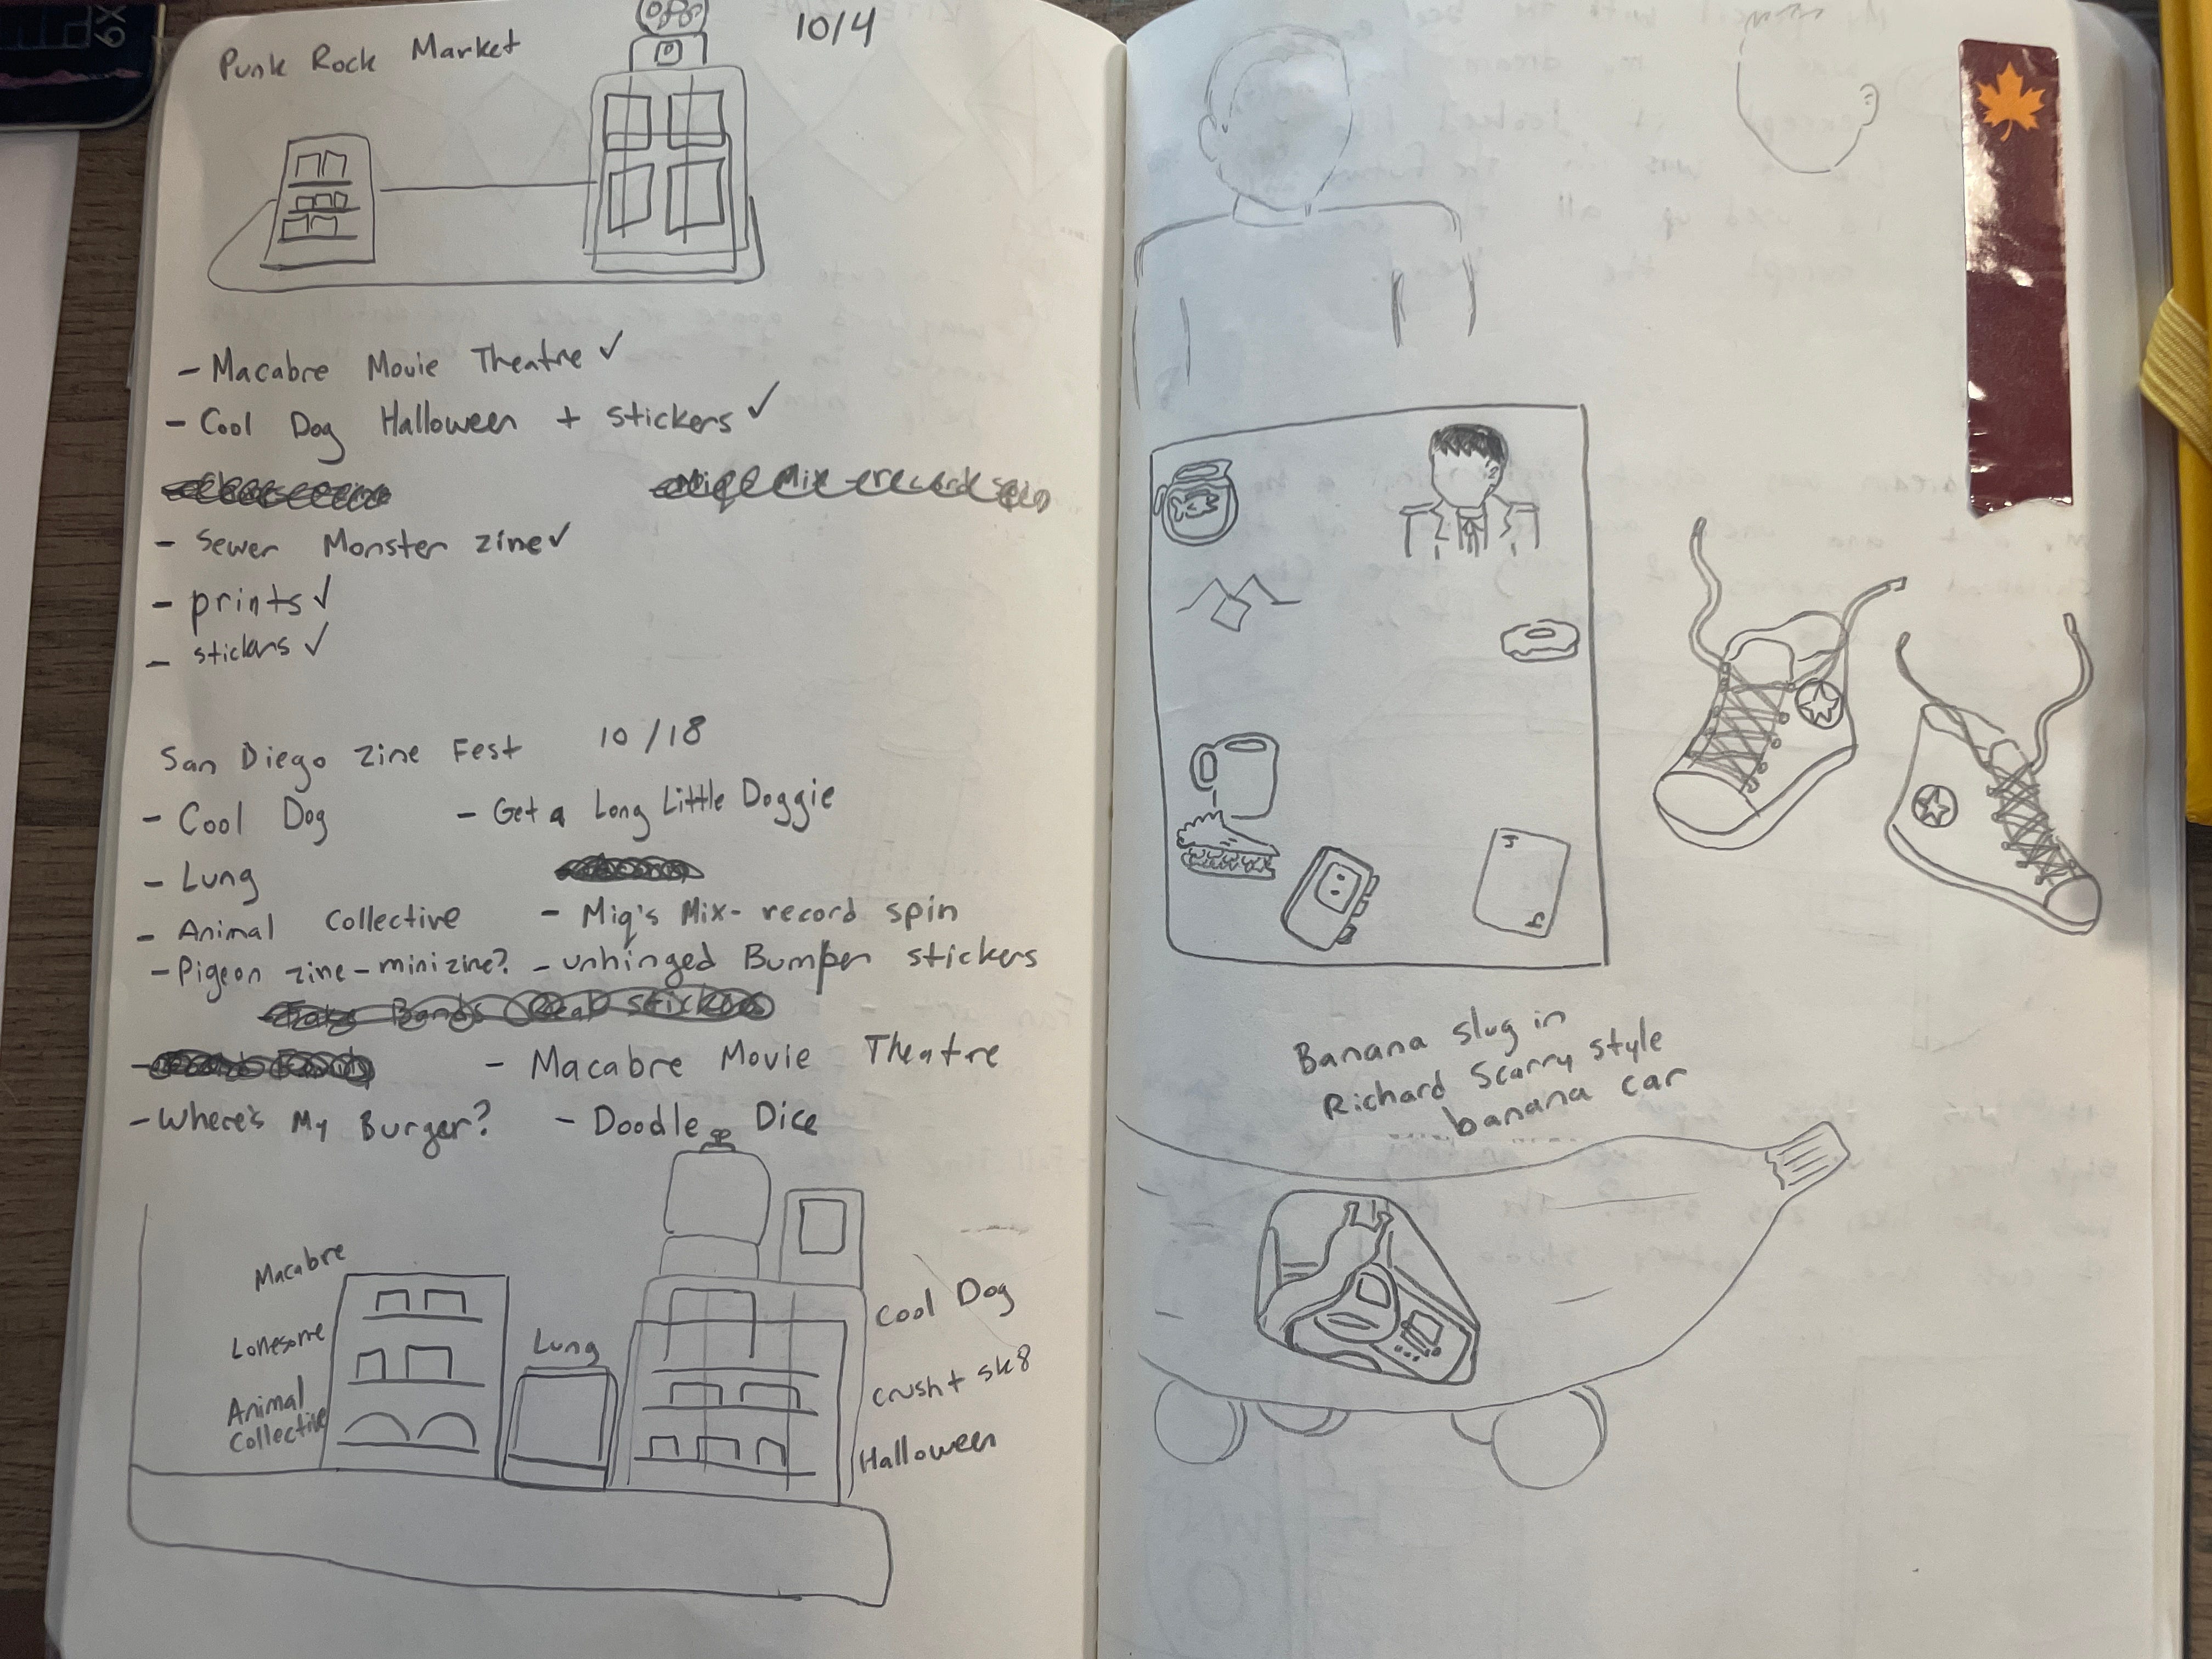 Punk Rock Market 10/4
- Macabre Movie Theatre ✓
- Cool Dog Halloween + stickers ✓
Miq's Mix-record spin
- Sewer Monster zine ✓
- prints ✓
- stickers ✓
San Diego Zine Fest 10/18
- Cool Dog - Get a Long Little Doggie
- Lung
- Animal Collective - Miq's Mix- record spin
- Pigeon zine - minizine? - unhinged Bumper stickers
- Fake Bands Real stickers
- Macabre Movie Theatre
- Where's My Burger? - Doodle Dice
Macabre
Lonesome
Animal
Collective
Lung
Cool Dog
Crush + sk8
Halloween
J
J
Banana slug in
Richard Scarry style
banana car